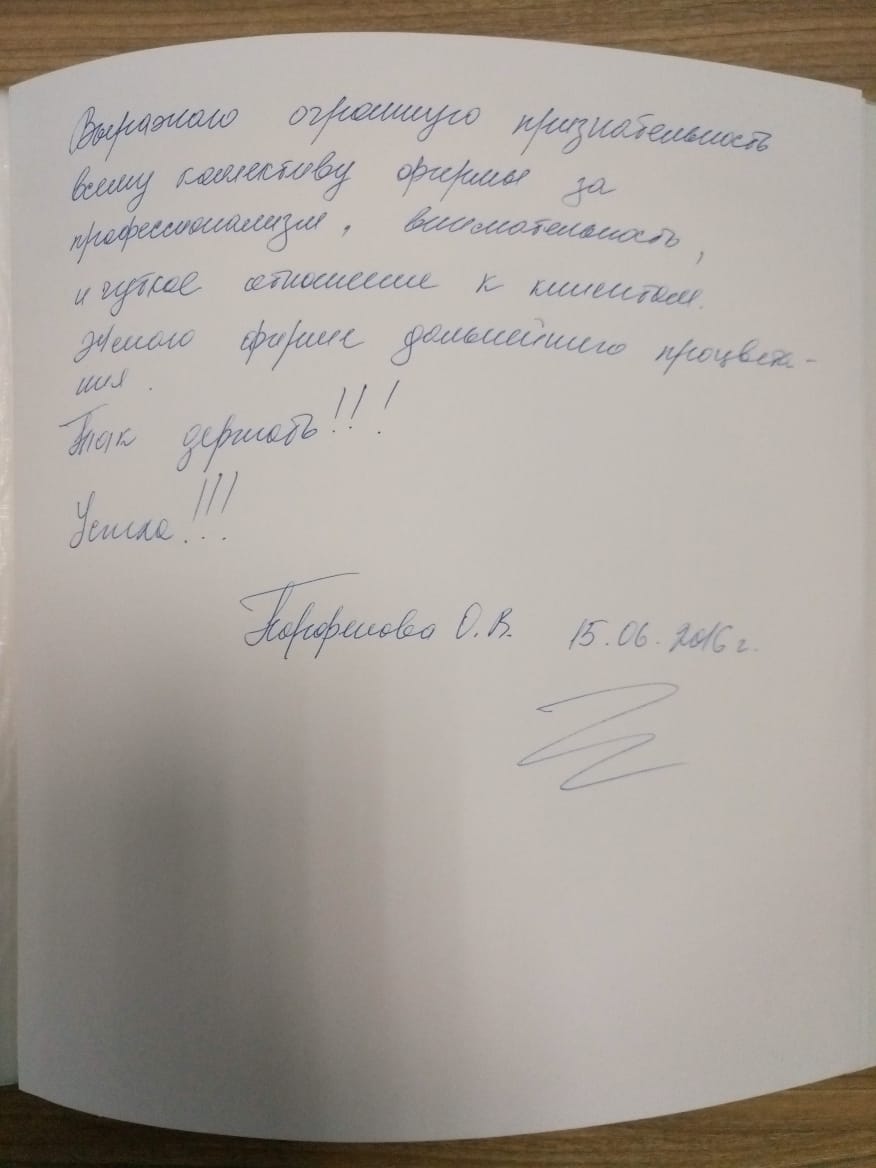 Выражаю огромную признательность
всему коллективу фирмы за
профессионализм, внимательность,
и чуткое отношение к клиентам.
Желаю фирме дальнейшего процвета-
ния.
Так держать!!!
Успеха!!!
О.В. 15.06.2016г.